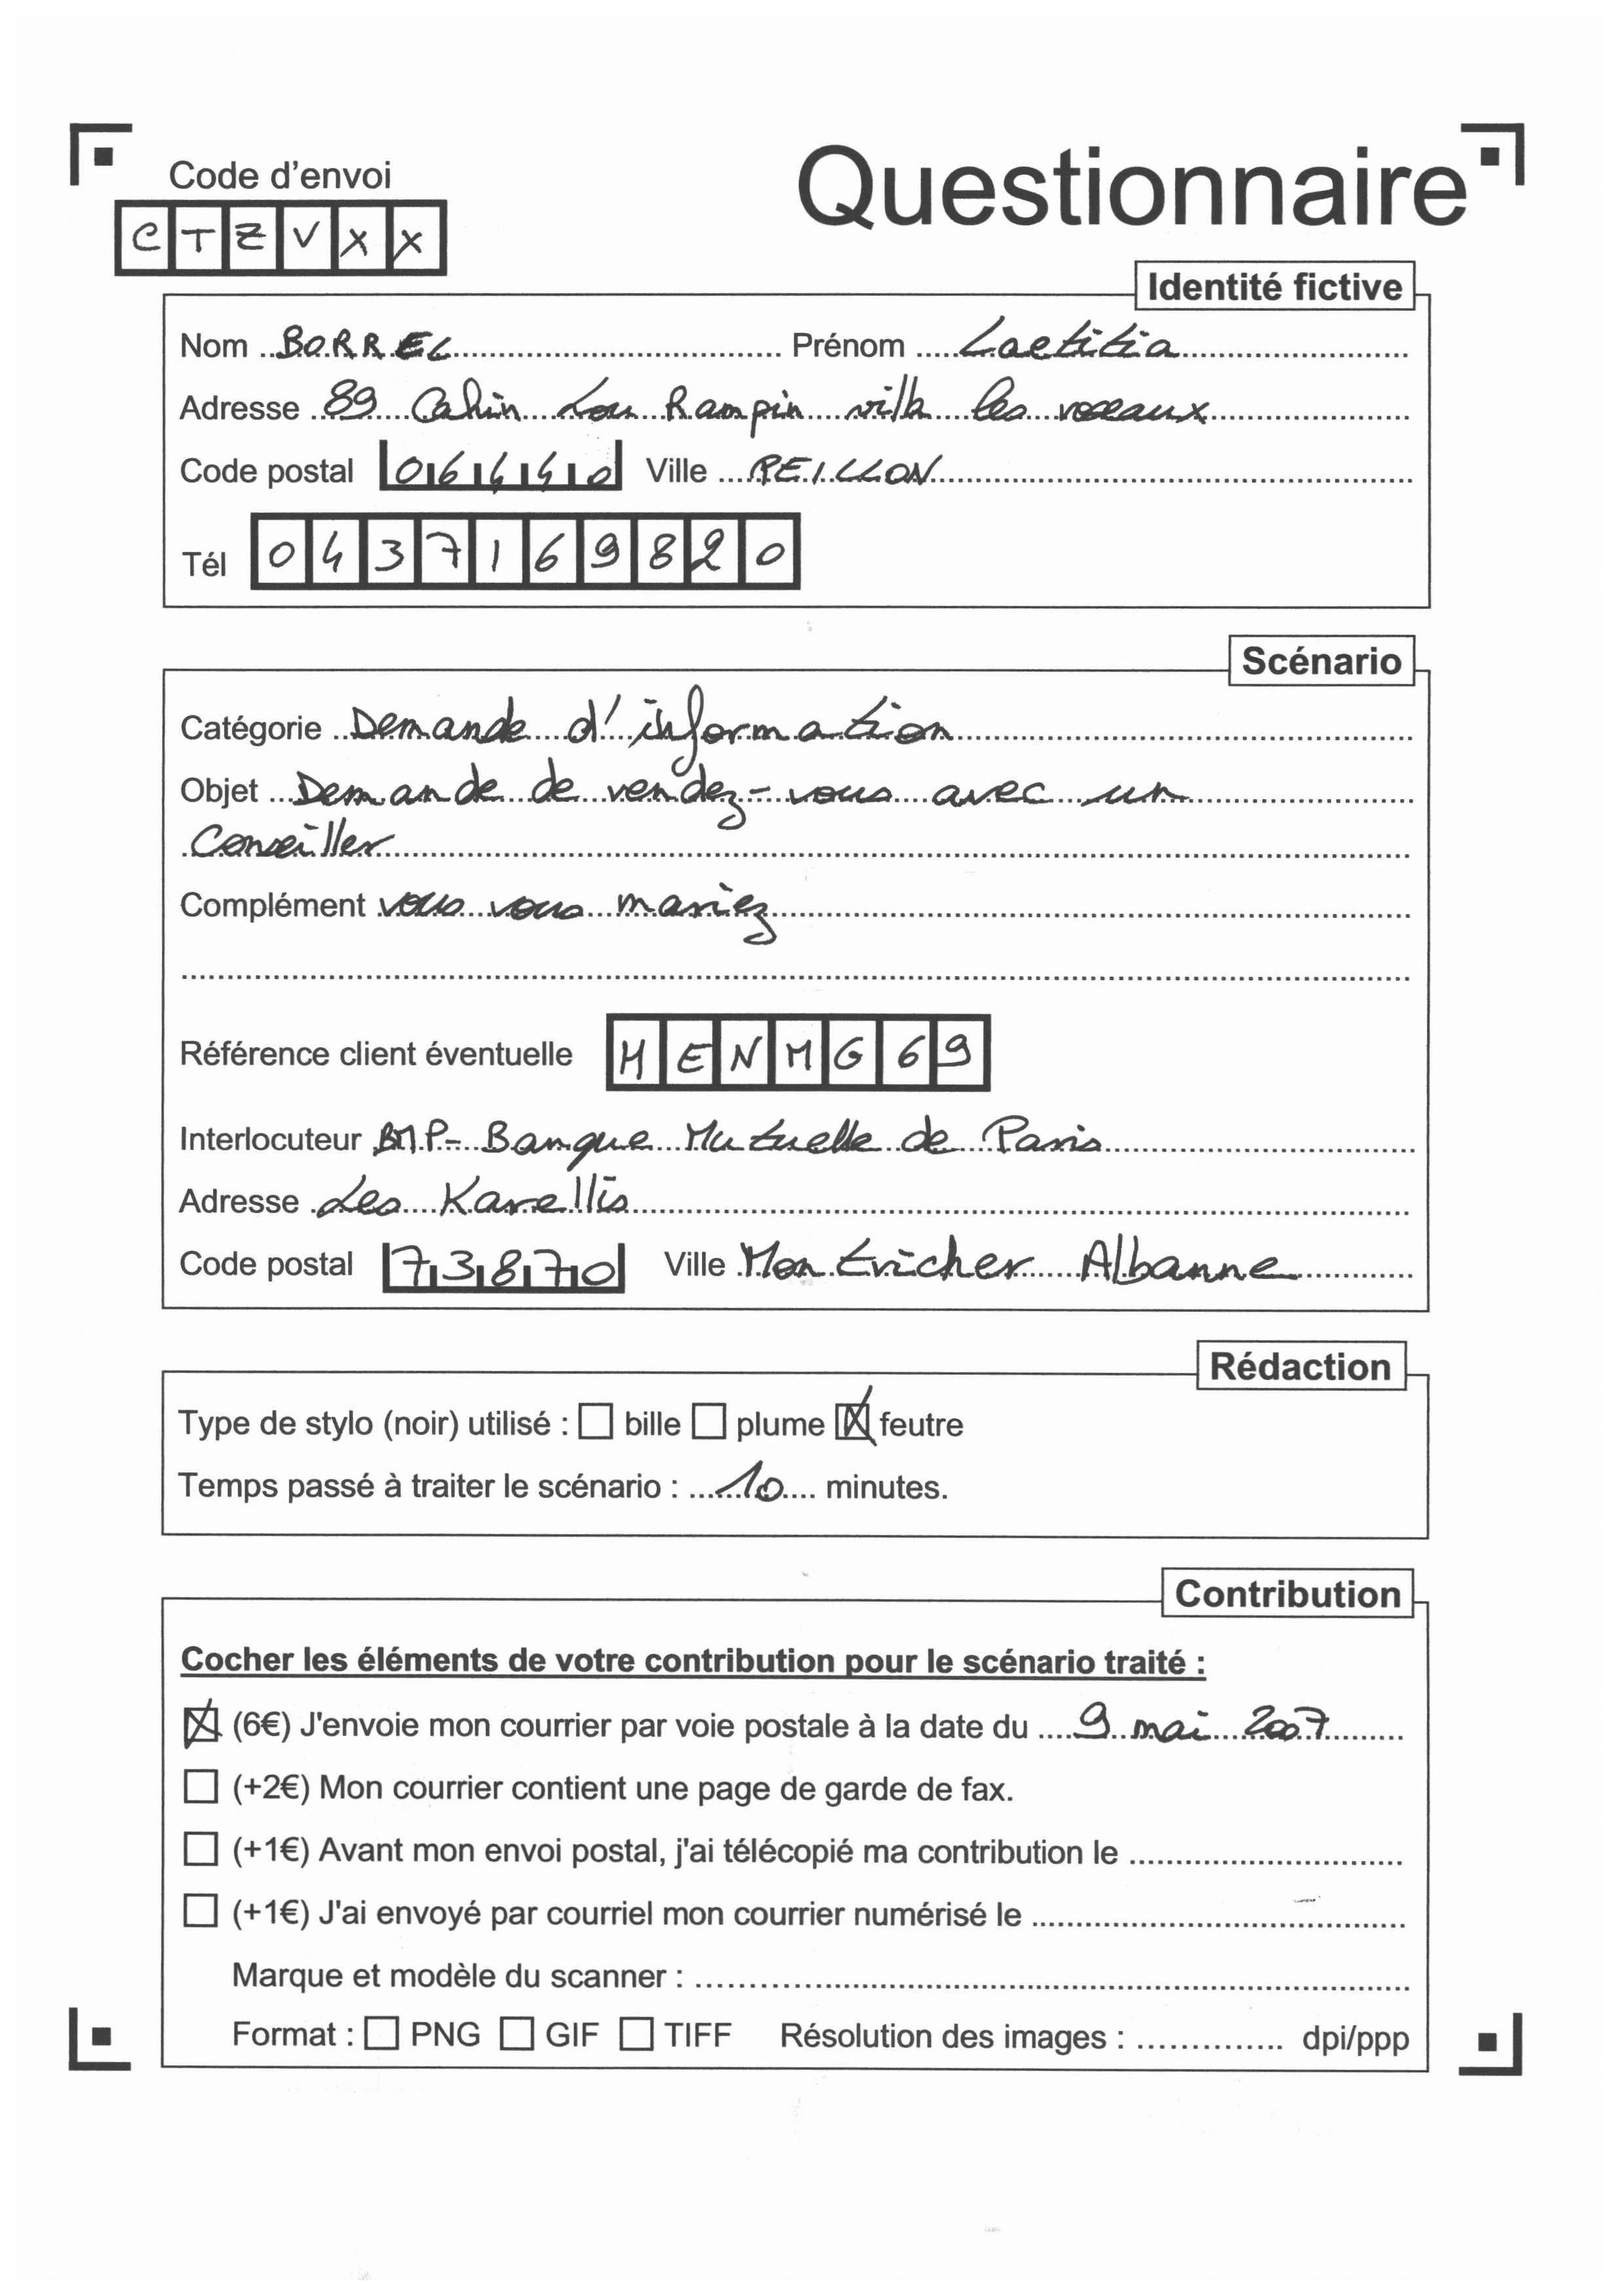 Questionnaire
Code d'envoi
C T Z V X X
Identité fictive
Nom BORREL Prénom Laetitia
Adresse 89 Calin Lou Rampin villa les
Code postal 06440 Ville PEILLON
Tél 0437169820
Scénario
Catégorie Demande d'information
Objet Demande de rendez-vous avec un
Conseiller
Complément vous vous mariez
Référence client éventuelle HENMG69
Interlocuteur BMP- Banque Mutuelle de Paris
Adresse Les Karellis
Code postal 73870 Ville Montricher Albanne
Rédaction
Type de stylo (noir) utilisé : bille plume feutre
Temps passé à traiter le scénario : 10 minutes.
Contribution
Cocher les éléments de votre contribution pour le scénario traité :
(6€) J'envoie mon courrier par voie postale à la date du 9 mai 2007
(+2€) Mon courrier contient une page de garde de fax.
(+1€) Avant mon envoi postal, j'ai télécopié ma contribution le
(+1€) J'ai envoyé par courriel mon courrier numérisé le
Marque et modèle du scanner :
Format : PNG GIF TIFF Résolution des images : dpi/ppp